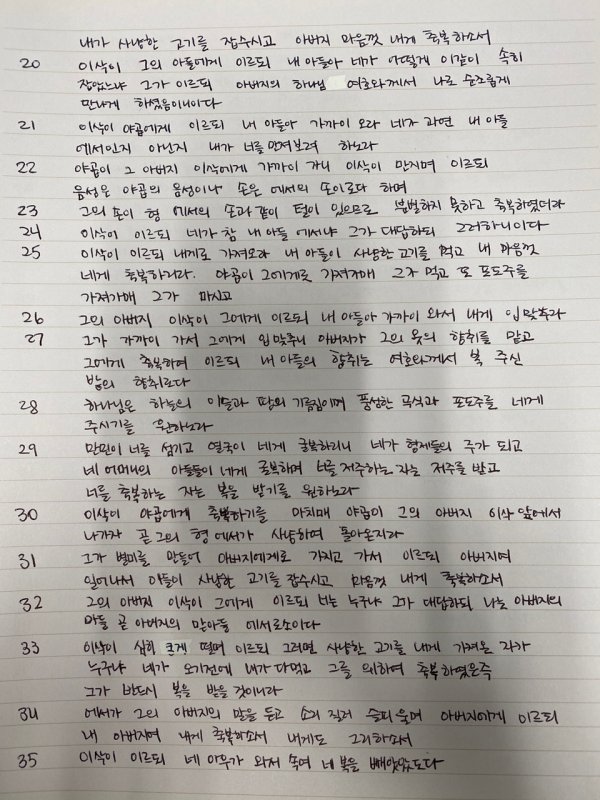 내가 사냥한 고기를 잡수시고 아버지 마음껏 내게 축복하소서
20 이삭이 그의 아들에게 이르되 내 아들아 네가 어떻게 이같이 속히
잡았느냐 그가 이르되 아버지의 하나님 여호와께서 나로 순조롭게
만나게 하셨음이니이다
21 이삭이 야곱에게 이르되 내 아들아 가까이 오라 네가 과연 내 아들
에서인지 아닌지 내가 너를 만져보려 하노라
22 야곱이 그 아버지 이삭에게 가까이 가니 이삭이 만지며 이르되
음성은 야곱의 음성이나 손은 에서의 손이로다 하며
23 그의 손이 형 에서의 손과 같이 털이 있으므로 분별하지 못하고 축복하였더라
24 이삭이 이르되 네가 참 내 아들 에서냐 그가 대답하되 그러하니이다
25 이삭이 이르되 내게로 가져오라 내 아들이 사냥한 고기를 먹고 내 마음껏
네게 축복하리라. 야곱이 그에게로 가져가매 그가 먹고 또 포도주를
가져가매 그가 마시고
26 그의 아버지 이삭이 그에게 이르되 내 아들아 가까이 와서 내게 입맞추라
27 그가 가까이 가서 그에게 입맞추니 아버지가 그의 옷의 향취를 맡고
그에게 축복하여 이르되 내 아들의 향취는 여호와께서 복 주신
밭의 향취로다
28 하나님은 하늘의 이슬과 땅의 기름짐이며 풍성한 곡식과 포도주를 네게
주시기를 원하노라
29 만민이 너를 섬기고 열국이 네게 굴복하리니 네가 형제들의 주가 되고
네 어머니의 아들들이 네게 굴복하며 너를 저주하는 자는 저주를 받고
너를 축복하는 자는 복을 받기를 원하노라
30 이삭이 야곱에게 축복하기를 마치매 야곱이 그의 아버지 이삭 앞에서
나가자 곧 그의 형 에서가 사냥하여 돌아온지라
31 그가 별미를 만들어 아버지에게로 가지고 가서 이르되 아버지여
일어나서 아들이 사냥한 고기를 잡수시고 마음껏 내게 축복하소서
32 그의 아버지 이삭이 그에게 이르되 너는 누구냐 그가 대답하되 나는 아버지의
아들 곧 아버지의 맏아들 에서로소이다
33 이삭이 심히 크게 떨며 이르되 그러면 사냥한 고기를 내게 가져온 자가
누구냐 네가 오기전에 내가 다먹고 그를 위하여 축복하였은즉
그가 반드시 복을 받을 것이니라
34 에서가 그의 아버지의 말을 듣고 소리 질러 슬피 울며 아버지에게 이르되
내 아버지여 내게 축복하소서 내게도 그리하소서
35 이삭이 이르되 네 아우가 와서 속여 네 복을 빼앗았도다